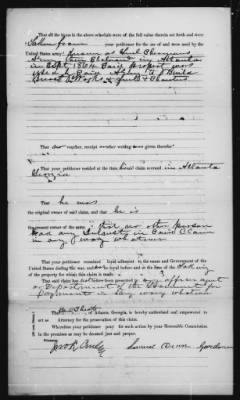 That all the items in the above schedule were of the full value therein set forth and were
taken from your petitioner for the use of and were used by the
United States army
in Atlanta
in Sept 1864 Said property was
used by Said Army to Build
That no voucher, receipt or other writing was given therefor
That your petitioner resided at the time said claim accrued in Atlanta
Georgia
That he was
the original owner of said claim, and that he is
the present owner of the same. That no other person
had any Interest in Said Claim
in any way whatever
That your petitioner remained loyal adherent to the cause and Government of the
United States during the war, and was so loyal before and at the time of the taking
of the property for which this claim is made.
That said claim has not before been presented to any officer agent
or Department of the Government for
payment in any way whatever
That of Atlanta, Georgia, is hereby authorized and empowered to
act as Attorney for the preservation of this claim.
Wherefore your petitioner pray for such action by your Honorable Commission
in the premises as may be deemed just and proper.